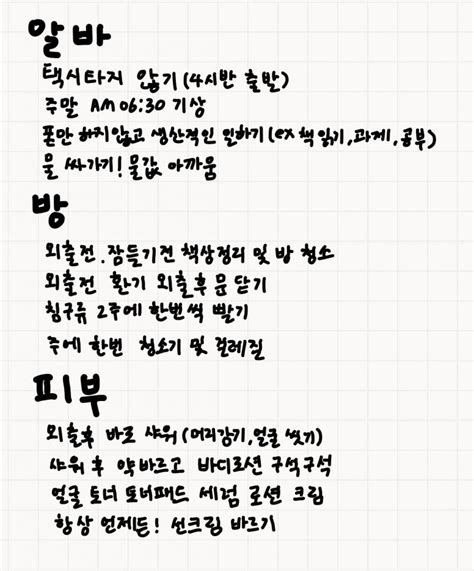 알바
택시타지 않기 (4시반 출발)
주말 AM 06:30 기상
폰만 하지않고 생산적인 일하기 (ex 책 읽기, 과제, 공부)
물 싸가기! 물값 아까움
방
외출전. 잠들기전 책상정리 및 방 청소
외출전 환기 외출후 문 닫기
침구류 2주에 한번씩 빨기
주에 한번 청소기 및 걸레질
피부
외출후 바로 샤워 (머리감기, 얼굴 씻기)
샤워 후 약 바르고 바디로션 구석구석
얼굴 토너 토너패드 세럼 로션 크림
항상 언제든! 선크림 바르기